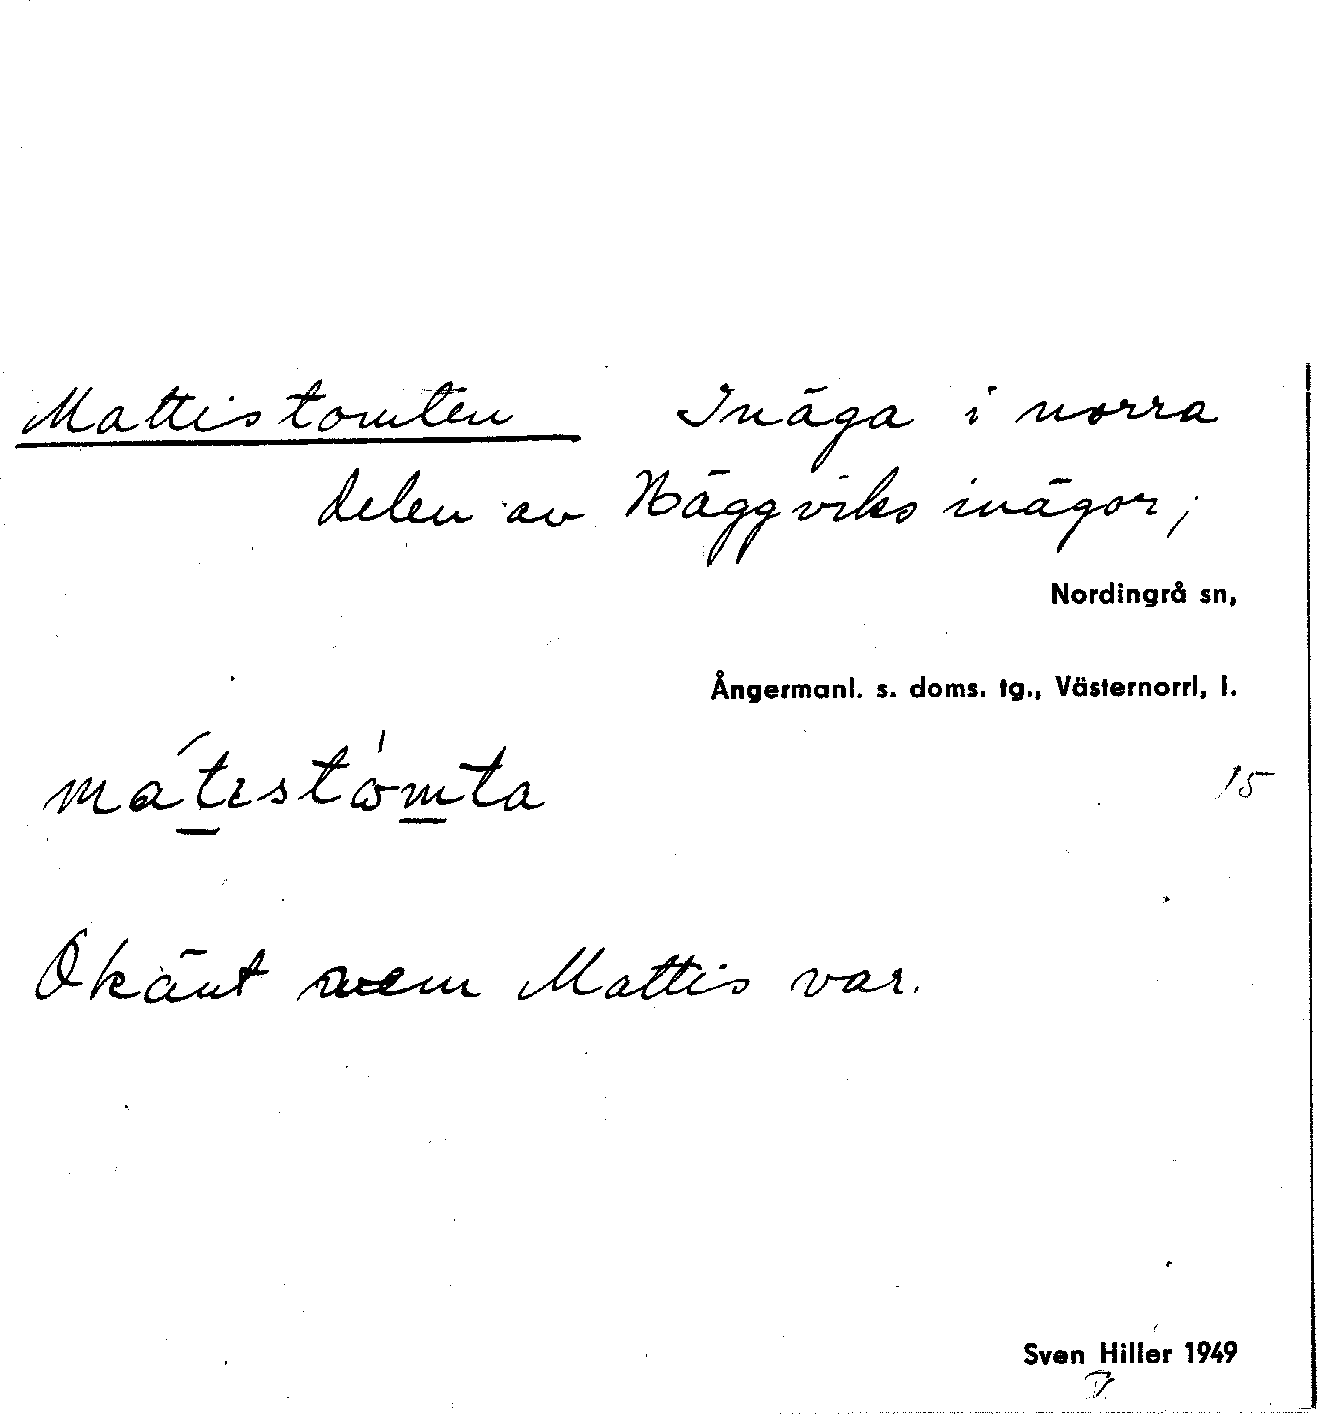 Mattistomten Inäga i norra
delen av Häggviks inägor;
Nordingrå sn,
Ångermanl. s. doms. tg., Västernorrl, l.
mátɩstòmta
15
Okänt vem Mattis var.
Sven Hiller 1949